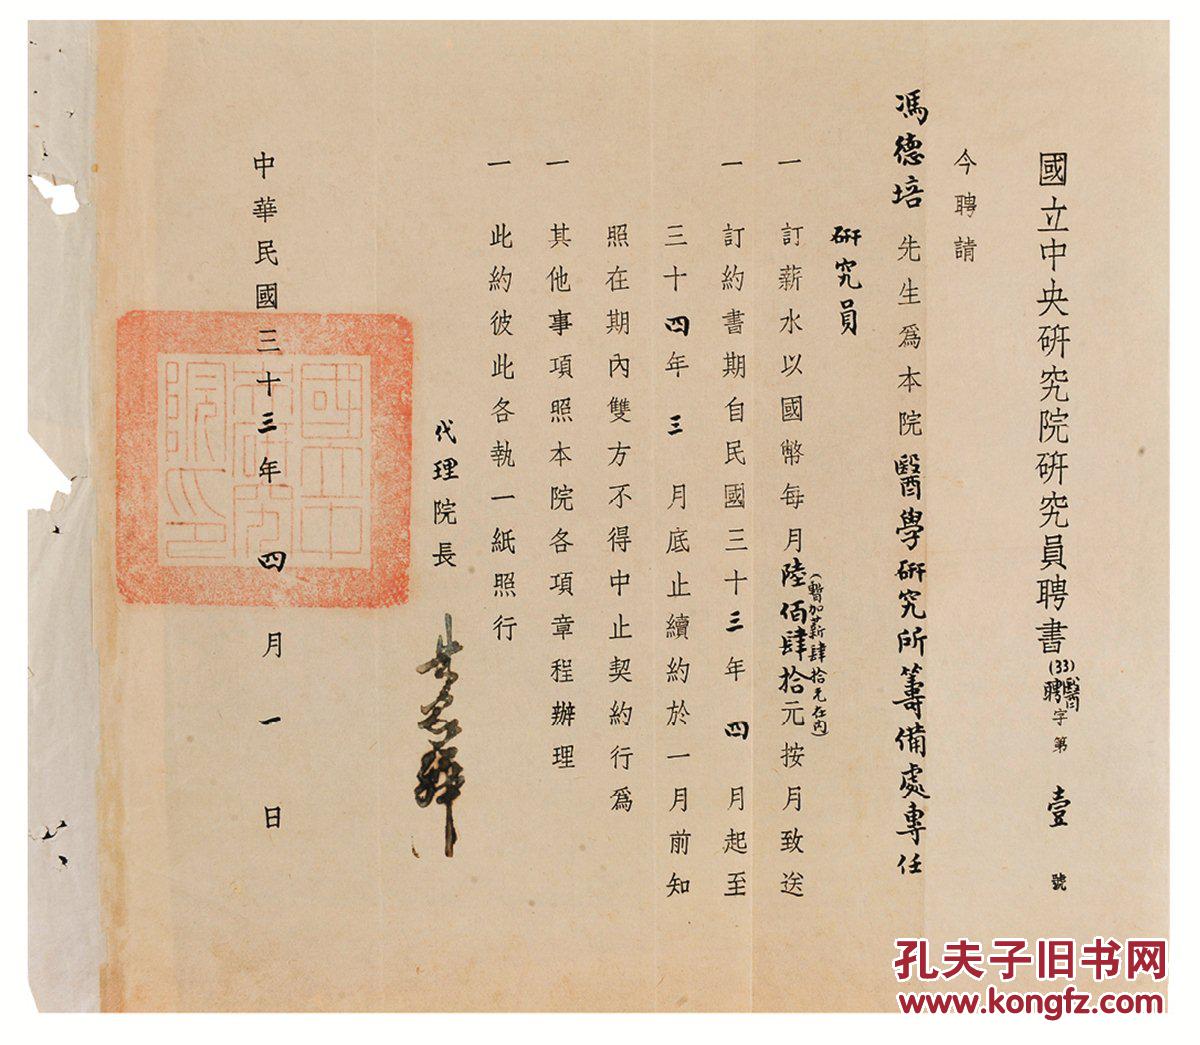 國立中央研究院研究員聘書(33)醫聘字第壹號
今聘請
馮德培先生為本院醫學研究所籌備處專任
研究員
一 訂薪水以國幣每月陸佰肆拾元按月致送
(暫加薪肆拾元在內)
一 訂約書期自民國三十三年四月起至
三十四年三月底止續約於一月前知
照在期內雙方不得中止契約行為
一 其他事項照本院各項章程辦理
一 此約彼此各執一紙照行
代理院長 朱家驊
中華民國三十三年四月一日
國立中央研究院印
孔夫子旧书网
www.kongfz.com